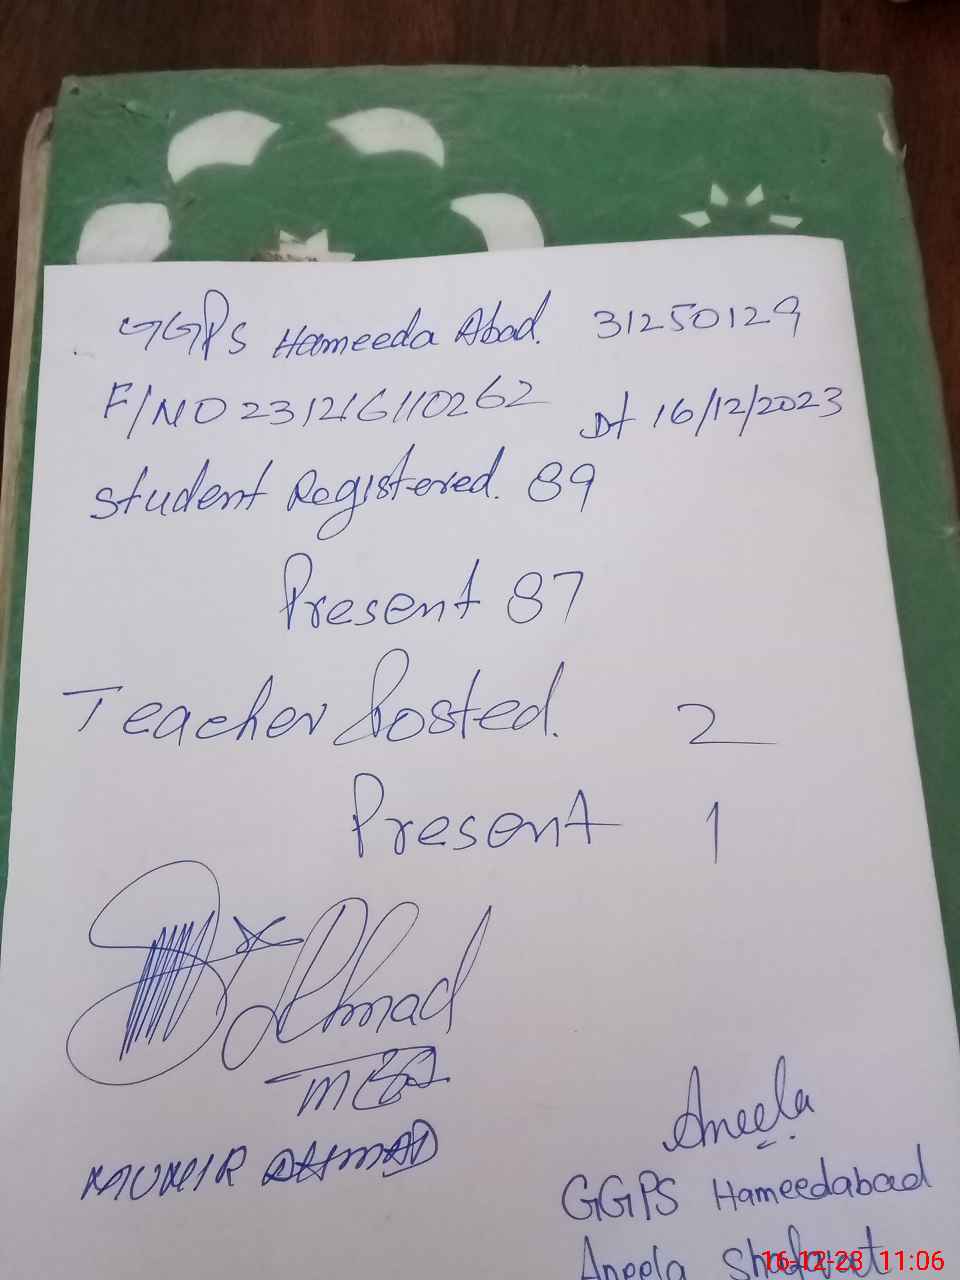 GGPS Hameeda Abad. 31250129
F/NO 231216110262 Dt 16/12/2023
Student Registered. 89
Present 87
Teacher Posted. 2
Present 1
Ahmad
MEA
MUNIR AHMAD
Aneela
GGPS Hameedabad
Aneela
16-12-23 11:06